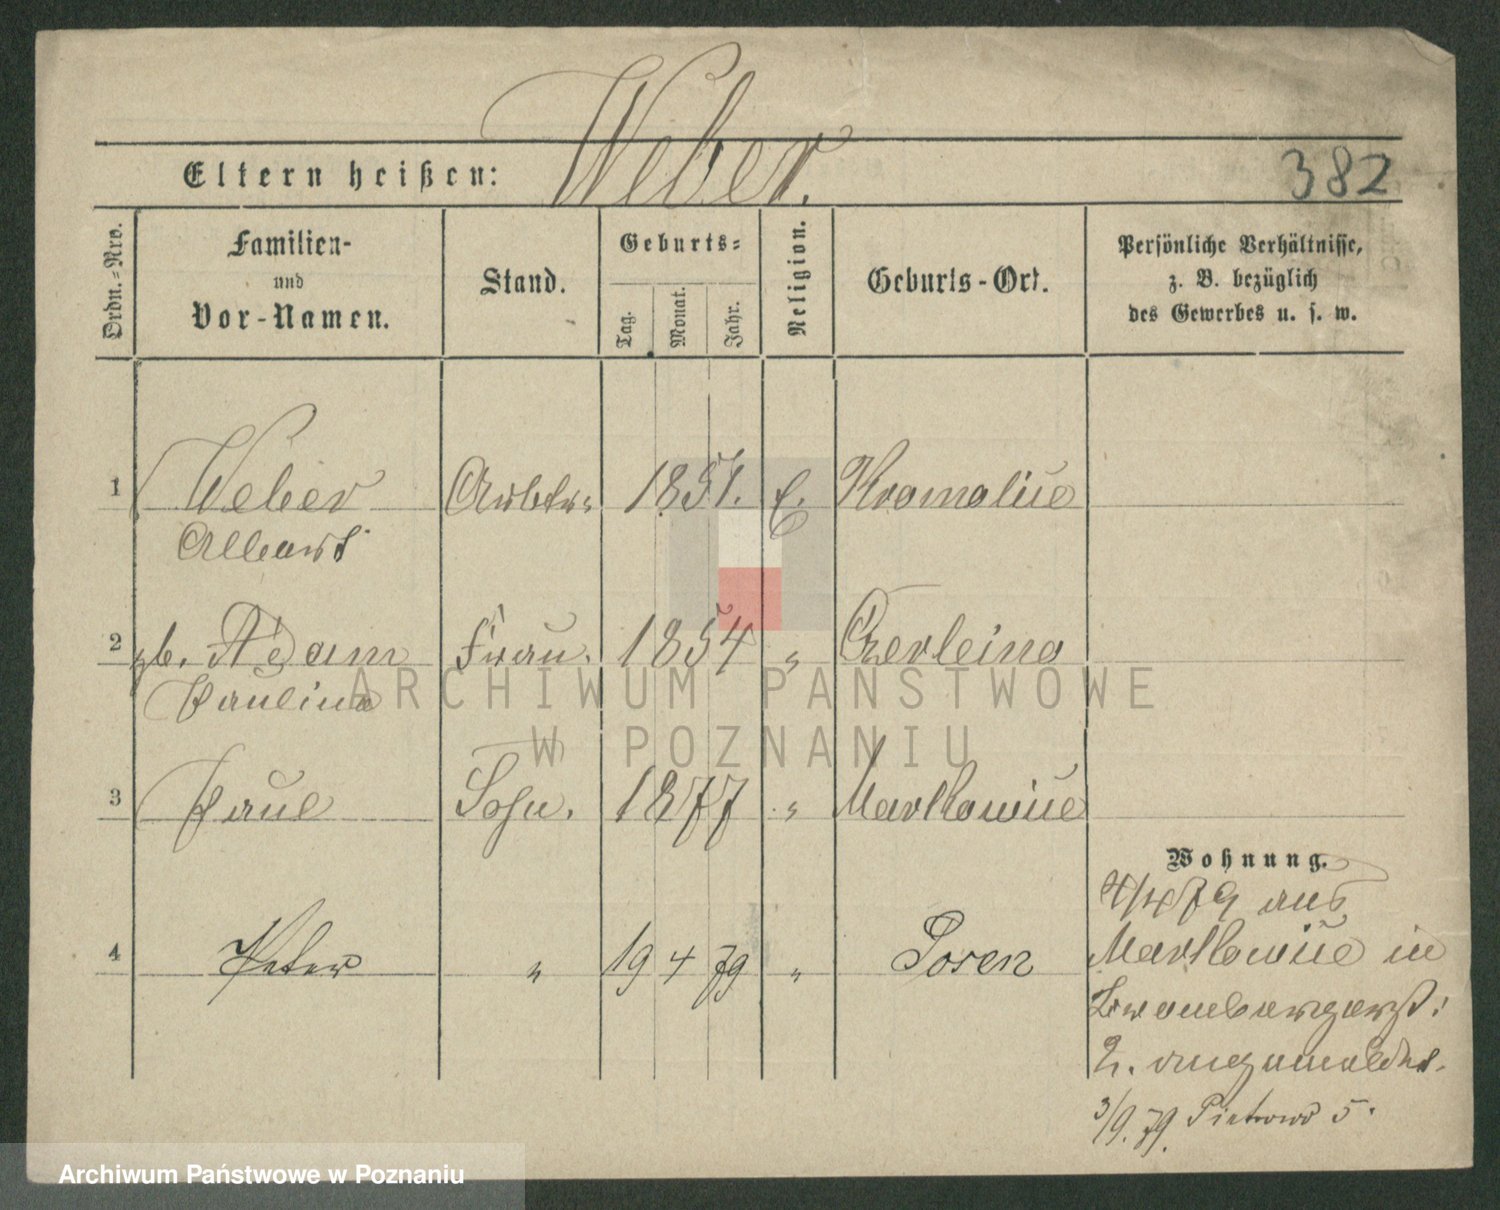 Weber.
Eltern heißen:
382
Ordn.-Nro.
Familien-
und
Vor-Namen.
Stand.
Geburts-
Tag.
Monat.
Jahr.
Religion.
Geburts-Ort.
Persönliche Verhältnisse,
z. B. bezüglich
des Gewerbes u. s. w.
1 Weber 1851. E. Kromolice
Albert
2 gb. Adam Frau. 1854 " Czerleino
Paulina
3 Paul Sohn. 1877 " Markowice
Wohnung.
4/4 79 aus
4 Peter " 19 4 79 " Posen
Markowice in
2. angemeldet.
3/9. 79. Piotrowo 5.
ARCHIWUM PAŃSTWOWE
W POZNANIU
Archiwum Państwowe w Poznaniu